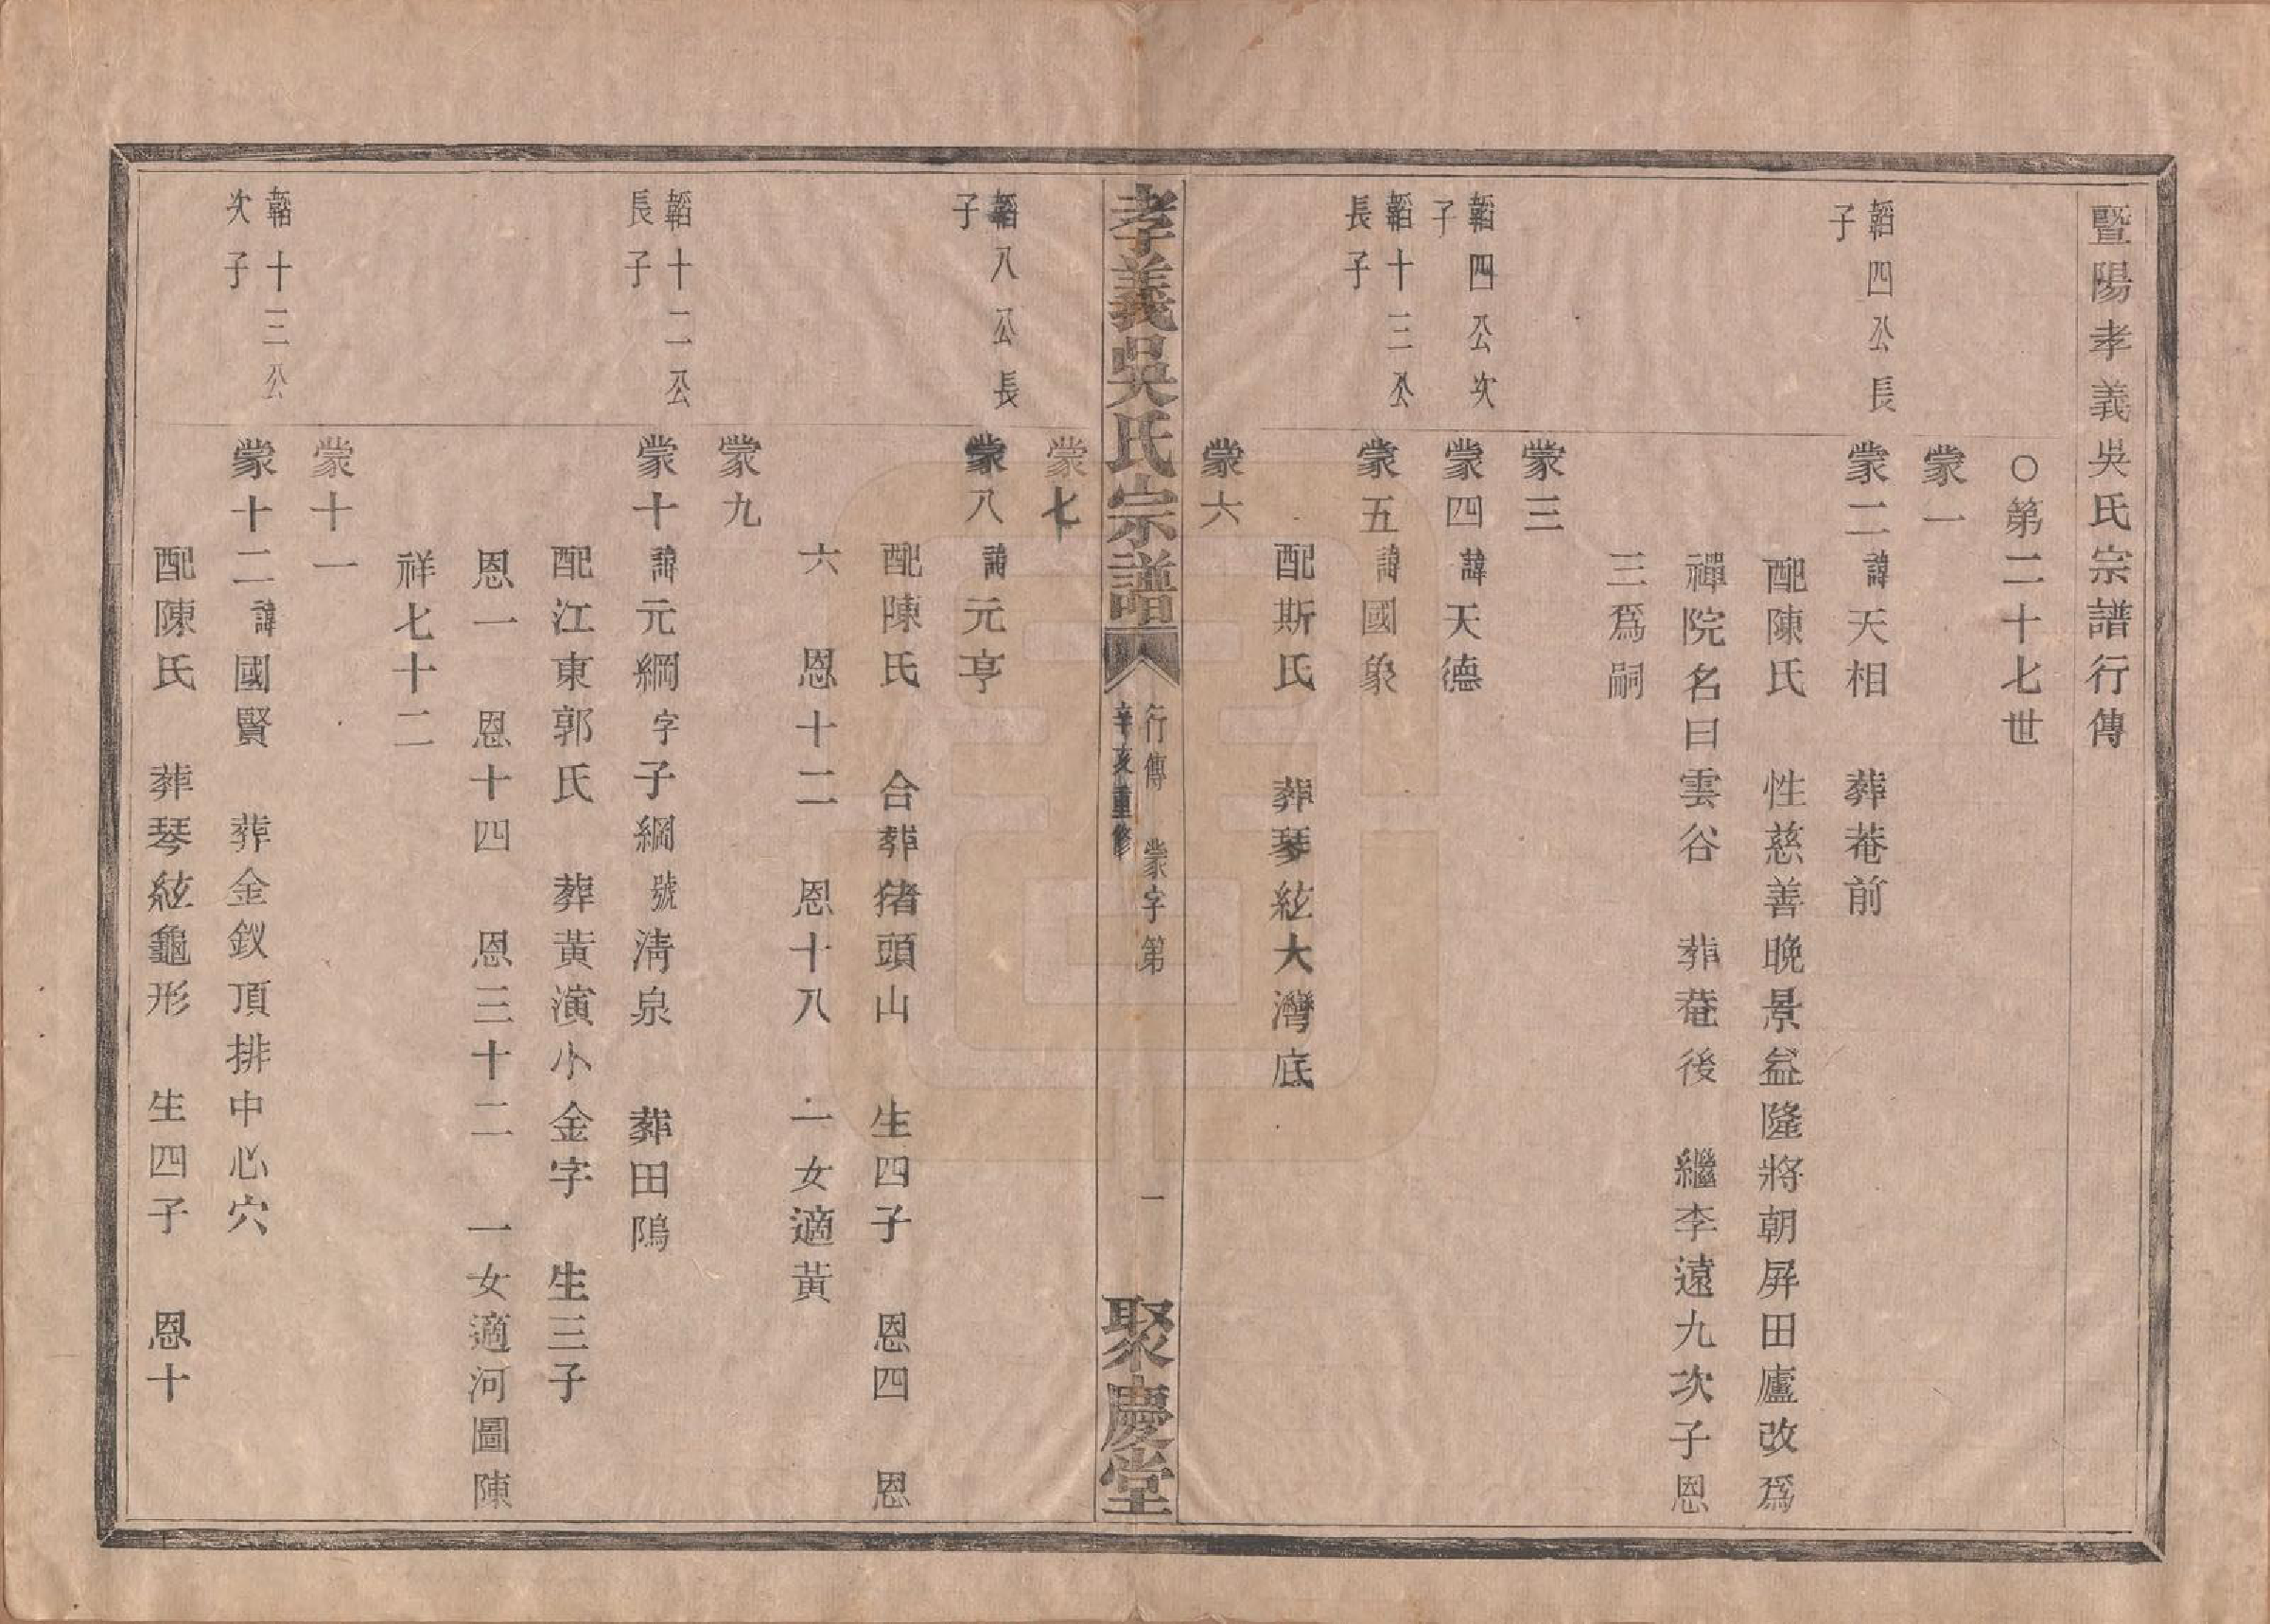 暨陽孝義吳氏宗譜行傳
○第二十七世
蒙一
韜四公長子
蒙二諱天相　葬菴前
配陳氏　性慈善晚景益隆將朝屏田廬改爲
禪院名曰雲谷　葬菴後　繼李遠九次子恩
三爲嗣
蒙三
韜四公次子
蒙四諱天德
韜十三公長子
蒙五諱國象
配斯氏　葬琴絃大灣底
蒙六
孝義吳氏宗譜
行傳　蒙字第　一
辛亥重修
聚慶堂
蒙七
韜八公長子
蒙八諱元亨
配陳氏　合葬猪頭山　生四子　恩四　恩
六　恩十二　恩十八　一女適黃
蒙九
韜十二公長子
蒙十諱元綱字子綱號清泉　葬田隖
配江東郭氏　葬黃演小金字　生三子
恩一　恩十四　恩三十二　一女適河圖陳
祥七十二
蒙十一
韜十三公次子
蒙十二諱國賢　葬金釵頂排中心穴
配陳氏　葬琴絃龜形　生四子　恩十